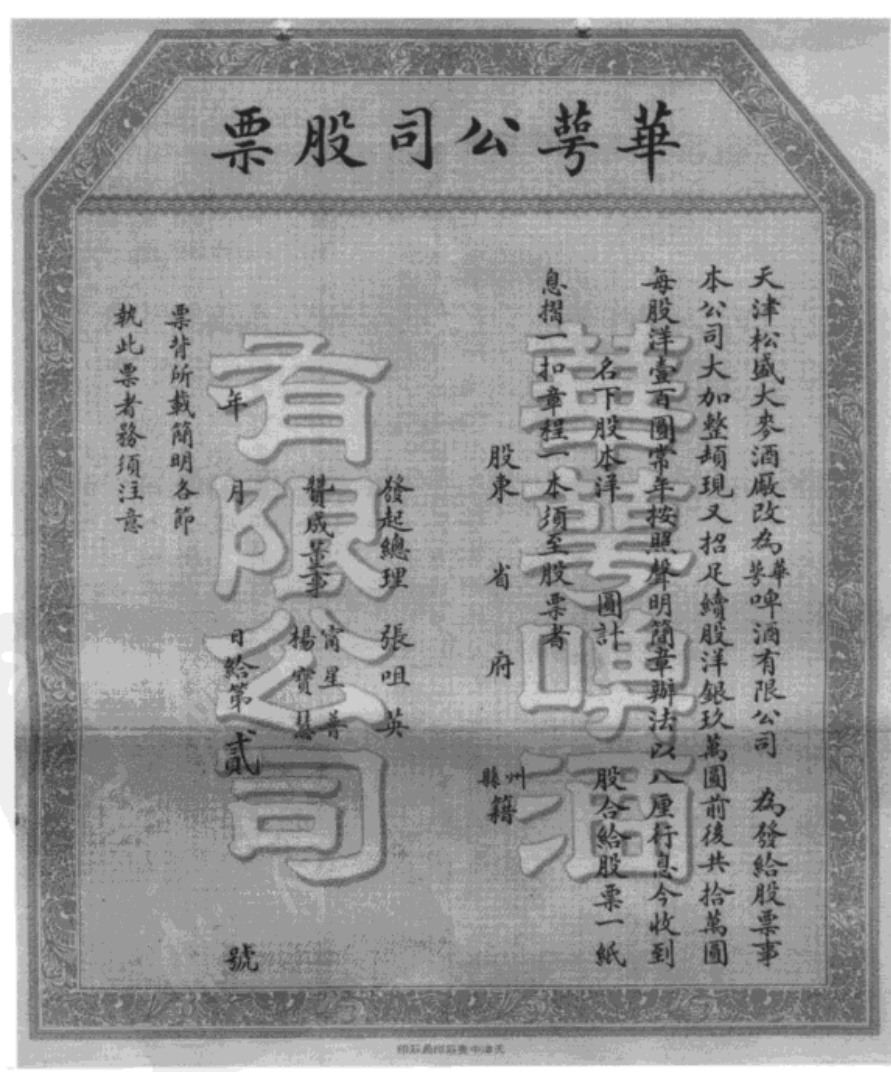 華萼公司股票
天津松盛大麥酒廠改為華萼啤酒有限公司 為發給股票事
本公司大加整頓現又招足續股洋銀玖萬圓前後共拾萬圓
每股洋壹百圓常年按照聲明簡章辦法以八厘行息今收到
名下股本洋 圓計 股合給股票一紙
息摺一扣章程一本須至股票者
股東 省 府 州縣籍
發起總理 張咀英
贊成董事 甯星普 楊寶慧
年 月 日給第貳 號
票背所載簡明各節
執此票者務須注意
華萼啤酒
有限公司
天津中東石印局石印